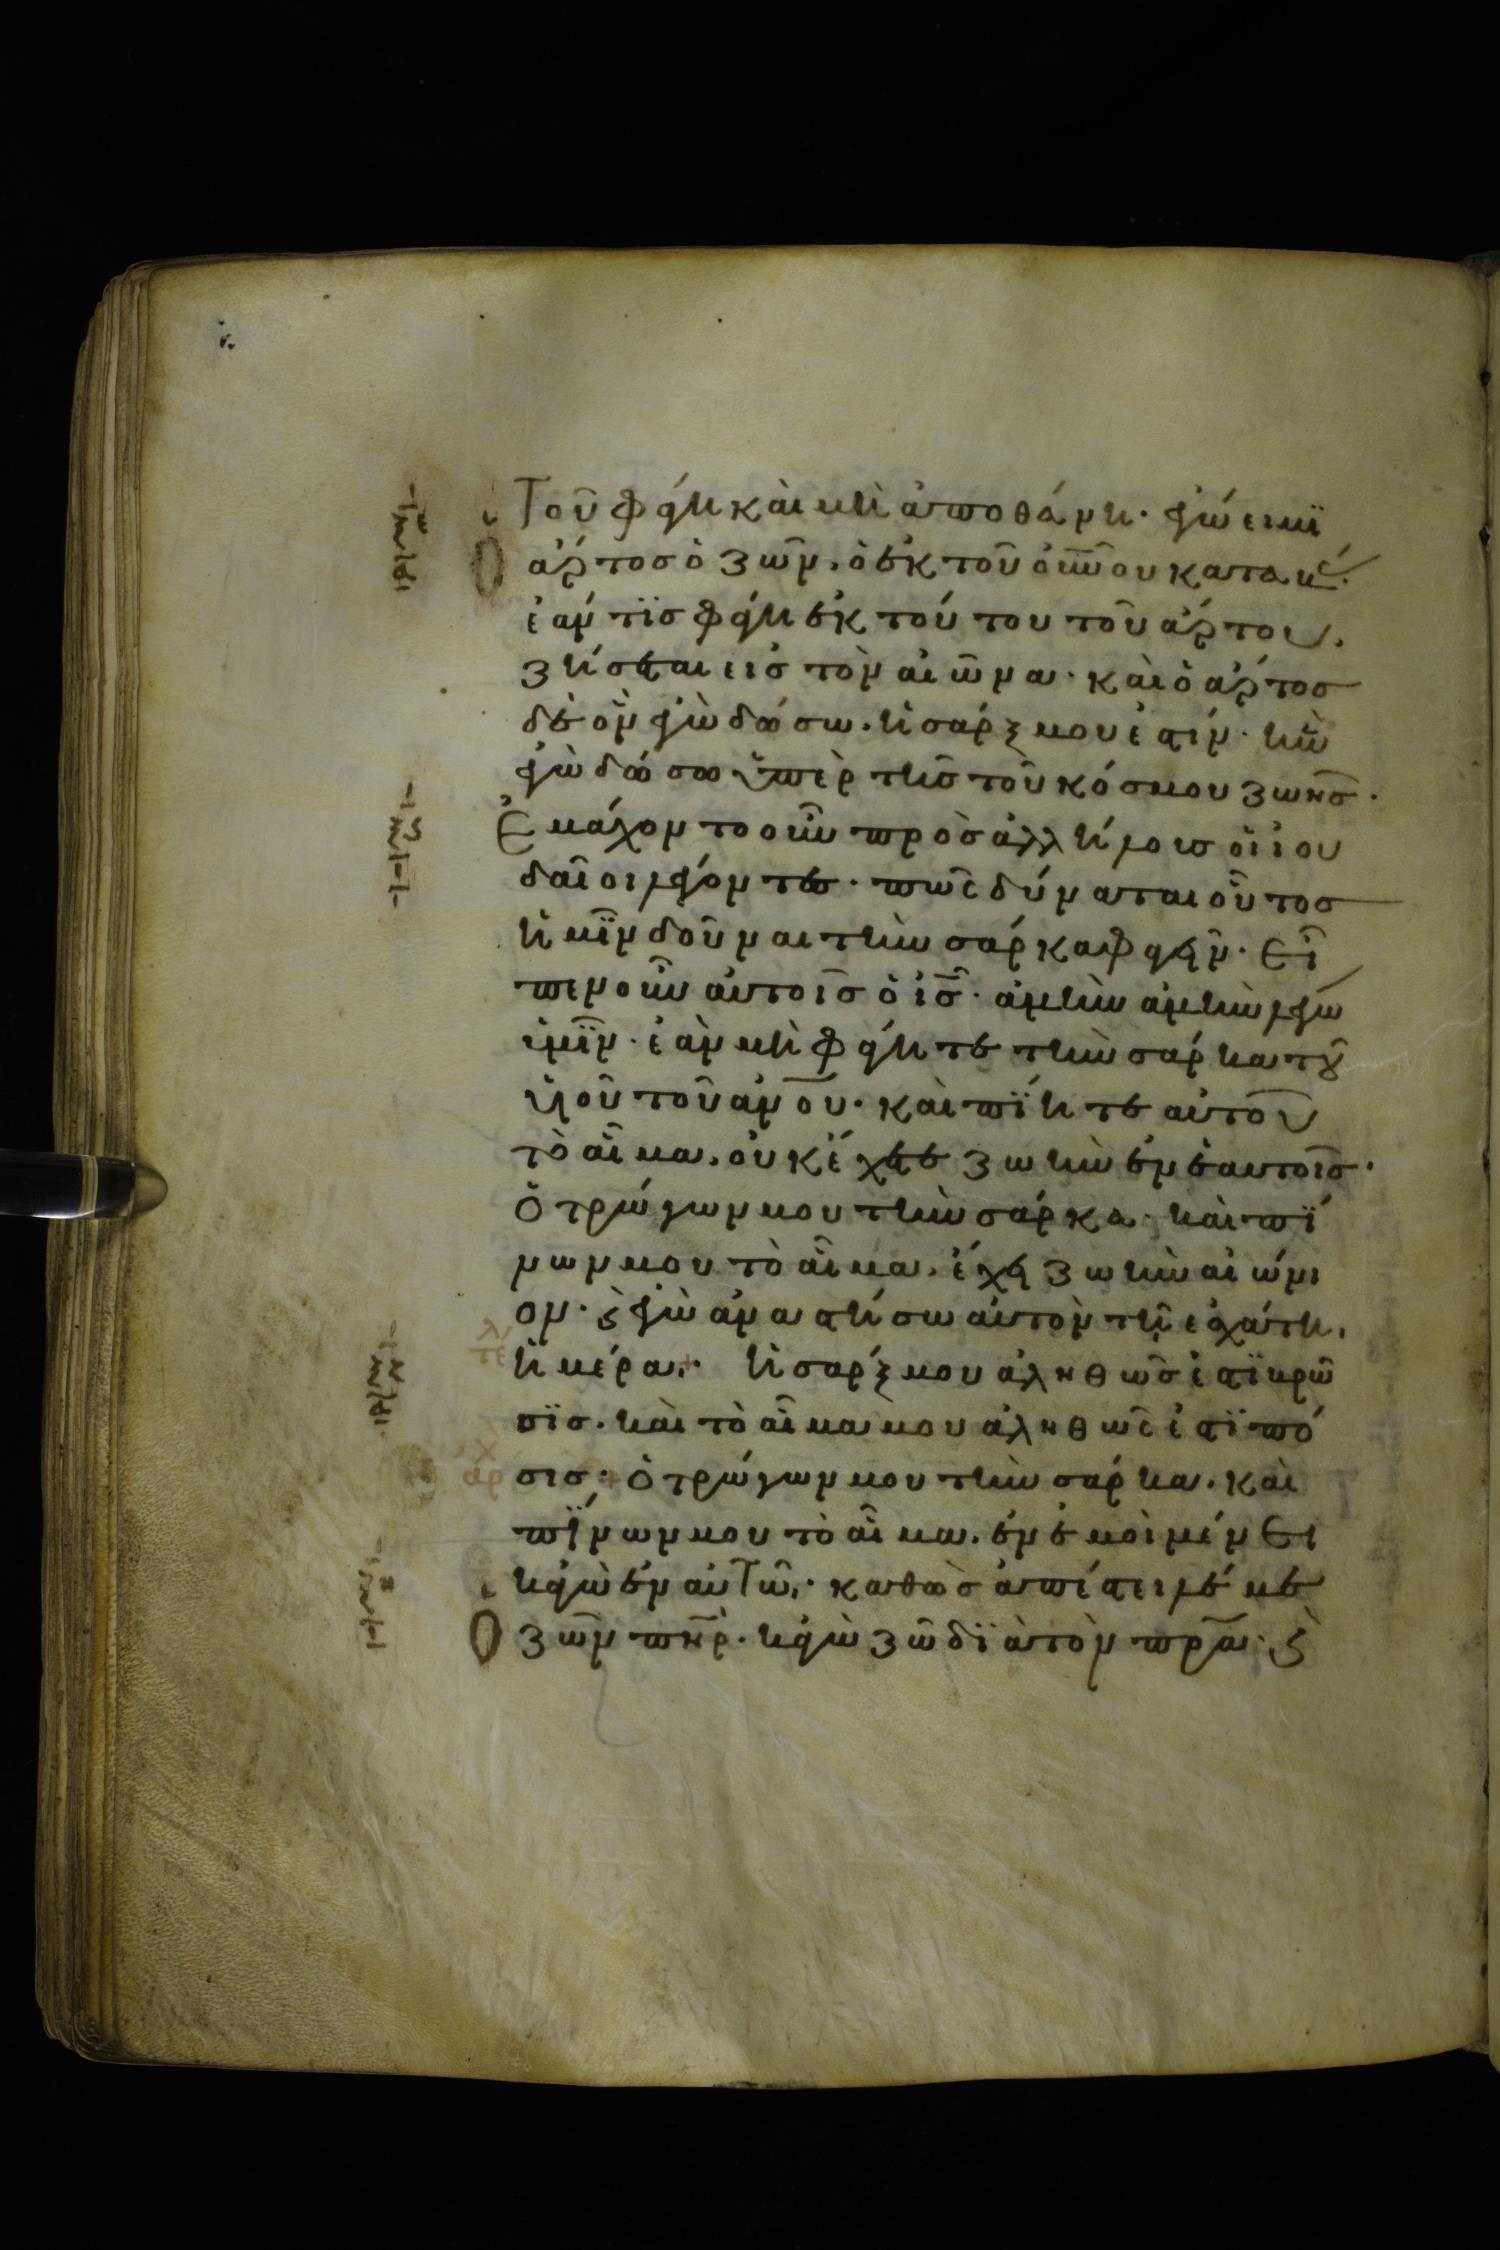 τοῦ φάγη καὶ μὴ ἀποθάνη· ἐγώ εἰμϊ
ἄρτοσ ὁ ζῶν. ὁ ἐκ τοῦ οὐνοῦ καταβάς·
ἐάν τϊσ φάγη ἐκ τούτου τοῦ ἄρτου.
ζήσεται εἰσ τὸν αἰῶνα· καὶ ὁ ἄρτοσ
δὲ ὃν ἐγὼ δώσω. ἡ σάρξ μου ἐστίν· ἣν
ἐγὼ δώσω ὑπὲρ τῆσ τοῦ κόσμου ζωῆσ·
Ἐμάχοντο οὖν πρὸσ ἀλλήλουσ οἱ ἰου
δαῖοι λέγοντεσ· πῶσ δύναται οὗτοσ
ἡμῖν δοῦναι τὴν σάρκα φαγεῖν· Εἶ
πεν οὖν αὐτοῖσ ὁ ισ· ἀμὴν ἀμὴν λέγω
ὑμῖν· ἐὰν μὴ φάγητε τὴν σάρκα τοῦ
υἱοῦ τοῦ ανου· καὶ πΐητε αὐτοῦ
τὸ αἷμα. οὐκ ἔχετε ζωὴν ἐν ἑαυτοῖσ·
Ὁ τρώγων μου τὴν σάρκα· καὶ πΐ
νων μου τὸ αἷμα. ἔχει ζωὴν αἰώνι
ον· καὶ ἐγὼ ἀναστήσω αὐτὸν τῆ ἐσχάτη.
ἡμέρα· ἡ σάρξ μου ἀληθῶσ ἐστϊ βρῶ
σϊσ· καὶ τὸ αἷμα μου ἀληθῶσ ἐστϊ πό
σισ· ὁ τρώγων μου τὴν σάρκα. καὶ
πΐνων μου τὸ αἷμα. ἐν ἐμοὶ μένει
κἀγὼ ἐν αὐτῶ· καθὼσ ἀπέστειλέ με
ὁ ζῶν πηρ· κἀγὼ ζῶ δϊὰ τὸν πρα· καὶ